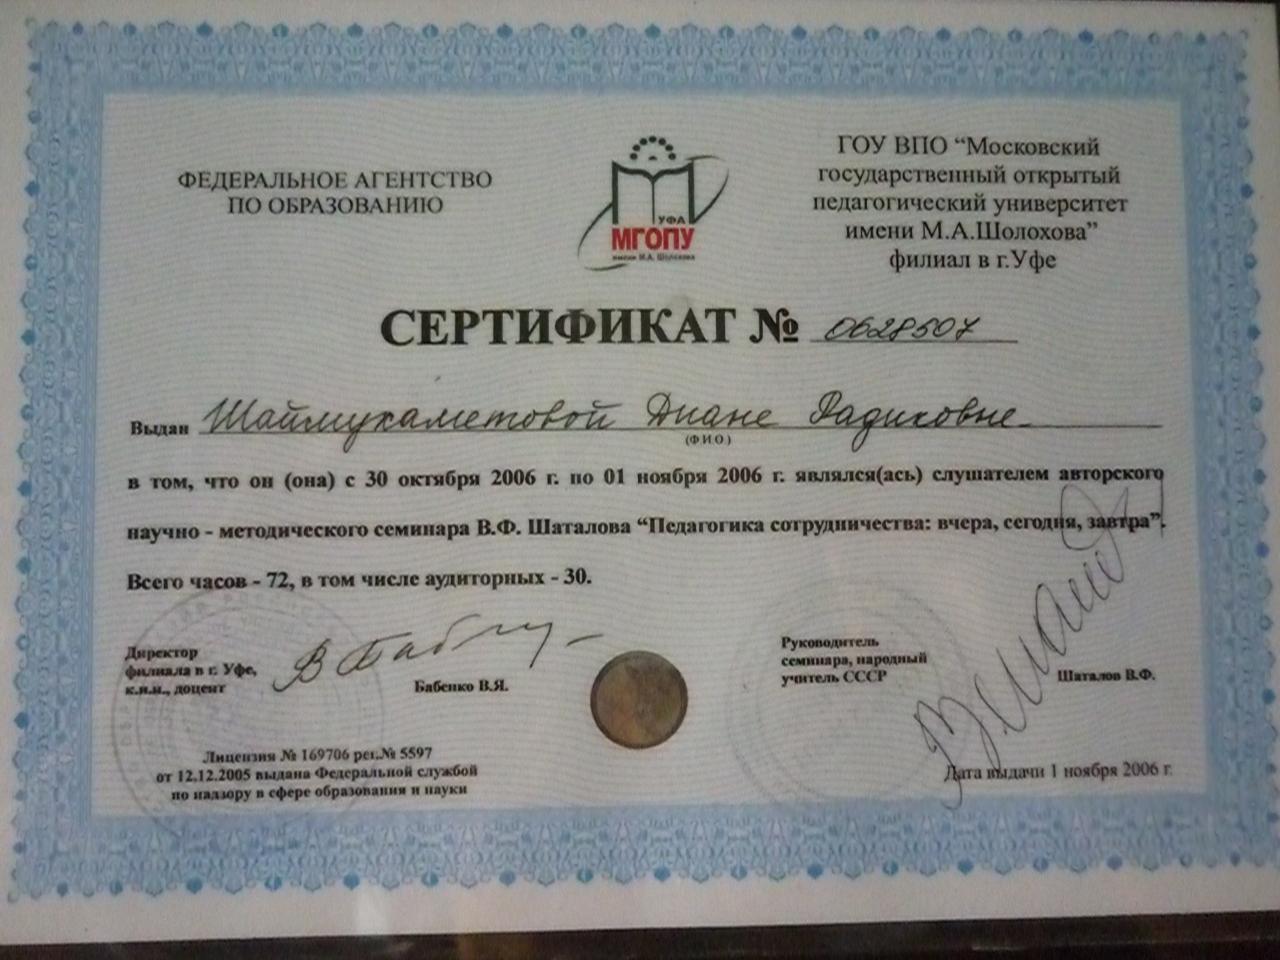 ФЕДЕРАЛЬНОЕ АГЕНТСТВО
ПО ОБРАЗОВАНИЮ
УФА
МГОПУ
имени М.А. Шолохова
ГОУ ВПО “Московский
государственный открытый
педагогический университет
имени М.А.Шолохова”
филиал в г.Уфе
СЕРТИФИКАТ № 0628507
Выдан Шаймухаметовой Диане Радиковне
(ФИО)
в том, что он (она) с 30 октября 2006 г. по 01 ноября 2006 г. являлся(ась) слушателем авторского
научно - методического семинара В.Ф. Шаталова “Педагогика сотрудничества: вчера, сегодня, завтра”.
Всего часов - 72, в том числе аудиторных - 30.
Директор
филиала в г. Уфе,
к.и.н., доцент
Бабенко В.Я.
Руководитель
семинара, народный
учитель СССР
Шаталов В.Ф.
Лицензия № 169706 рег.№ 5597
от 12.12.2005 выдана Федеральной службой
по надзору в сфере образования и науки
Дата выдачи 1 ноября 2006 г.